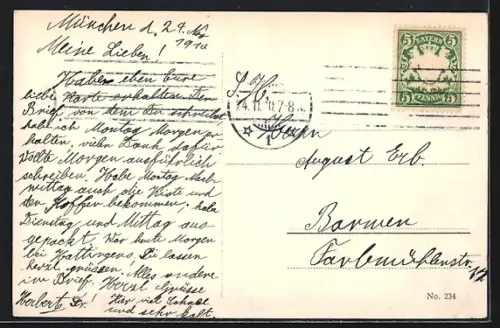 München d. 24. Nov
1910
Meine Lieben!
Haben eben Eure
liebe Karte erhalten. Den
Brief, von dem Du schreibst
hab ich Montag Morgen er-
halten, vielen Dank dafür
Wollte Morgen ausführlich
schreiben. Habe Montag Nach-
mittag auch die Kiste und
den Koffer bekommen, hab
Dienstag und Mittag aus-
gepackt. War heute Morgen
bei Hattingens, Sie lassen
herzl. grüssen. Alles andere
im Brief. Herzl. Grüsse
Herbert
Hier viel Schnee
und sehr kalt.
BAYERN
5 5
5 PFENNIG 5
S. H.
24.11. 7-8
1
Herrn
August Erb.
Barmen
Farbmühlenstr. 17
No. 234